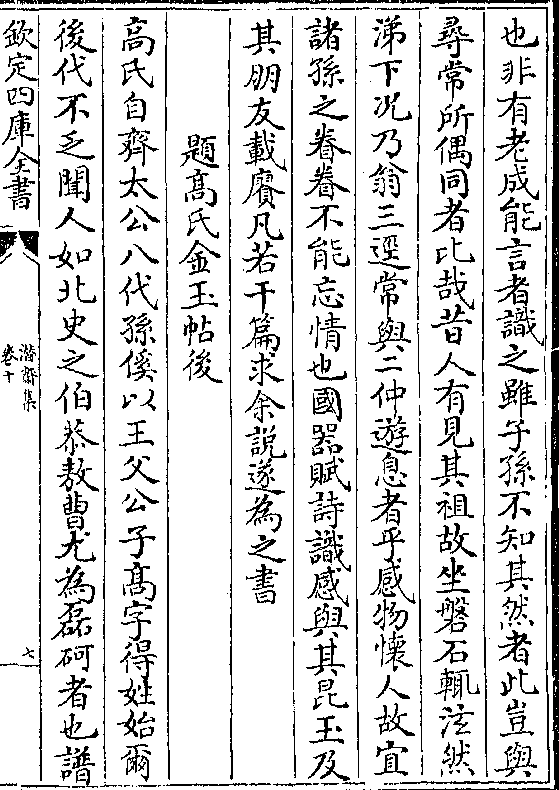 也非有老成能言者識之雖子孫不知其然者此豈與
尋常所偶同者比哉昔人有見其祖故坐磐石輒泫然
涕下况乃翁三逕常與二仲遊息者乎感物懷人故宜
諸孫之眷眷不能忘情也國器賦詩識感與其昆玉及
其朋友載賡凡若干篇求余説遂為之書
題髙氏金玉帖後
高氏自齊太公八代孫傒以王父公子髙字得姓始爾
後代不乏聞人如北史之伯恭敖曹尤為磊砢者也譜
欽定四庫全書
潛齋集
卷十
七